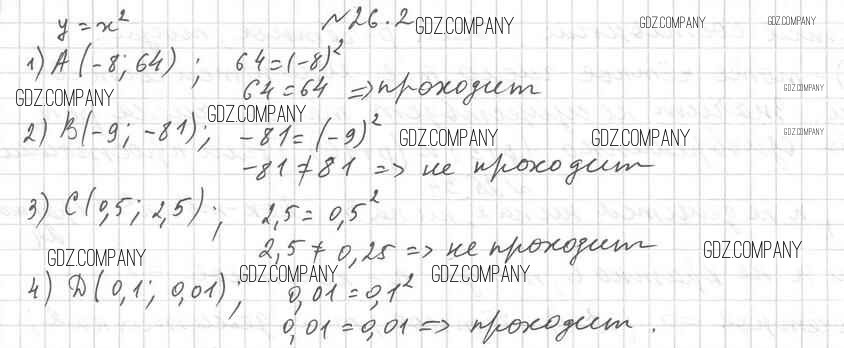 y = x² №26.2 GDZ.COMPANY GDZ.COMPANY GDZ.COMPANY
1) A (-8; 64) ; 64 = (-8)²
64 = 64 => проходит GDZ.COMPANY
GDZ.COMPANY GDZ.COMPANY
2) B(-9; -81); -81 = (-9)² GDZ.COMPANY GDZ.COMPANY GDZ.COMPANY
-81 ≠ 81 => не проходит
3) C(0,5; 2,5); 2,5 = 0,5²
2,5 ≠ 0,25 => не проходит GDZ.COMPANY
GDZ.COMPANY GDZ.COMPANY GDZ.COMPANY
4) D(0,1; 0,01); 0,01 = 0,1²
0,01 = 0,01 => проходит.